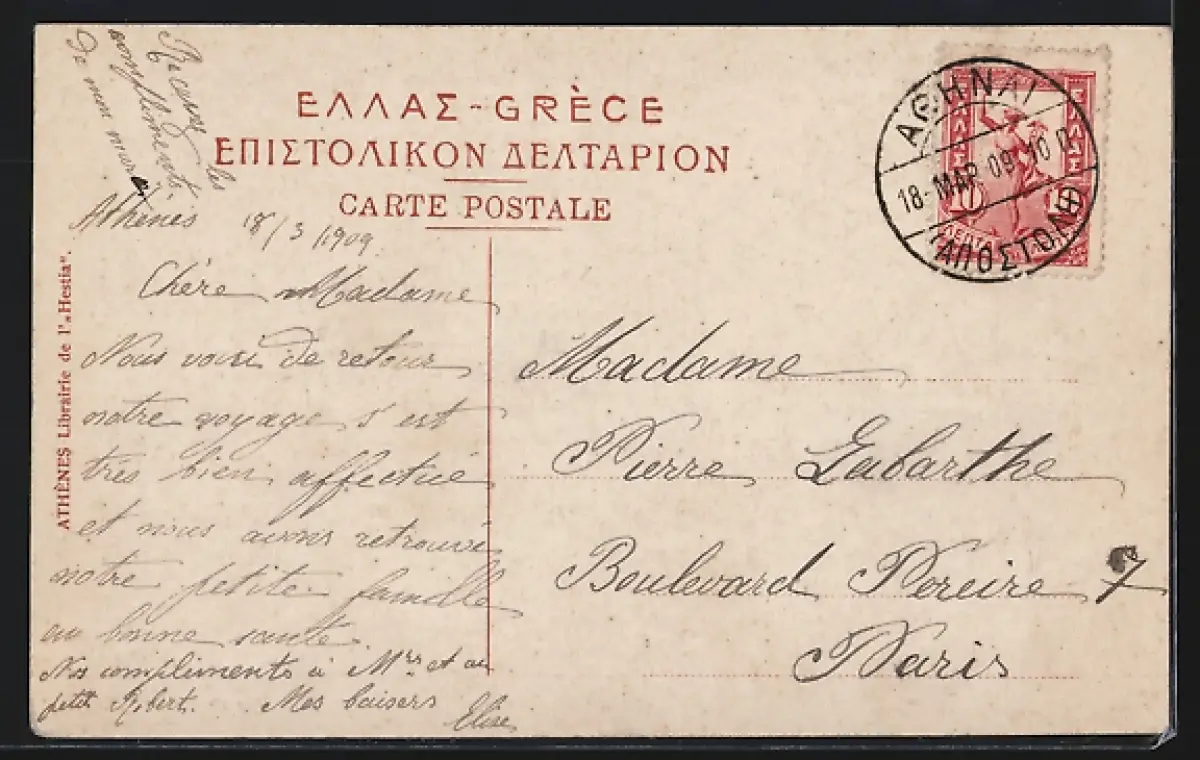 Recevez les
compliments
de mon mari
ΕΛΛΑΣ-GRÈCE
ΕΠΙΣΤΟΛΙΚΟΝ ΔΕΛΤΑΡΙΟΝ
CARTE POSTALE
ΑΘΗΝΑΙ
18-ΜΑΡ 09 10
ΑΠΟΣΤΟΛΗ
ΕΛΛΑΣ
10
ΛΕΠΤΑ
ATHÈNES Librairie de l'„Hestia".
Athénes 18/3/1909
Chére Madame
Nous voici de retour
notre voyage s'est
très bien affectué
et nous avons retrouvé
notre petite famille
en bonne santé.
Nos compliments à Mrs et au
petit Robert. Mes baisers
Elise
Madame
Pierre Labarthe
Boulevard Pereire 7
Paris